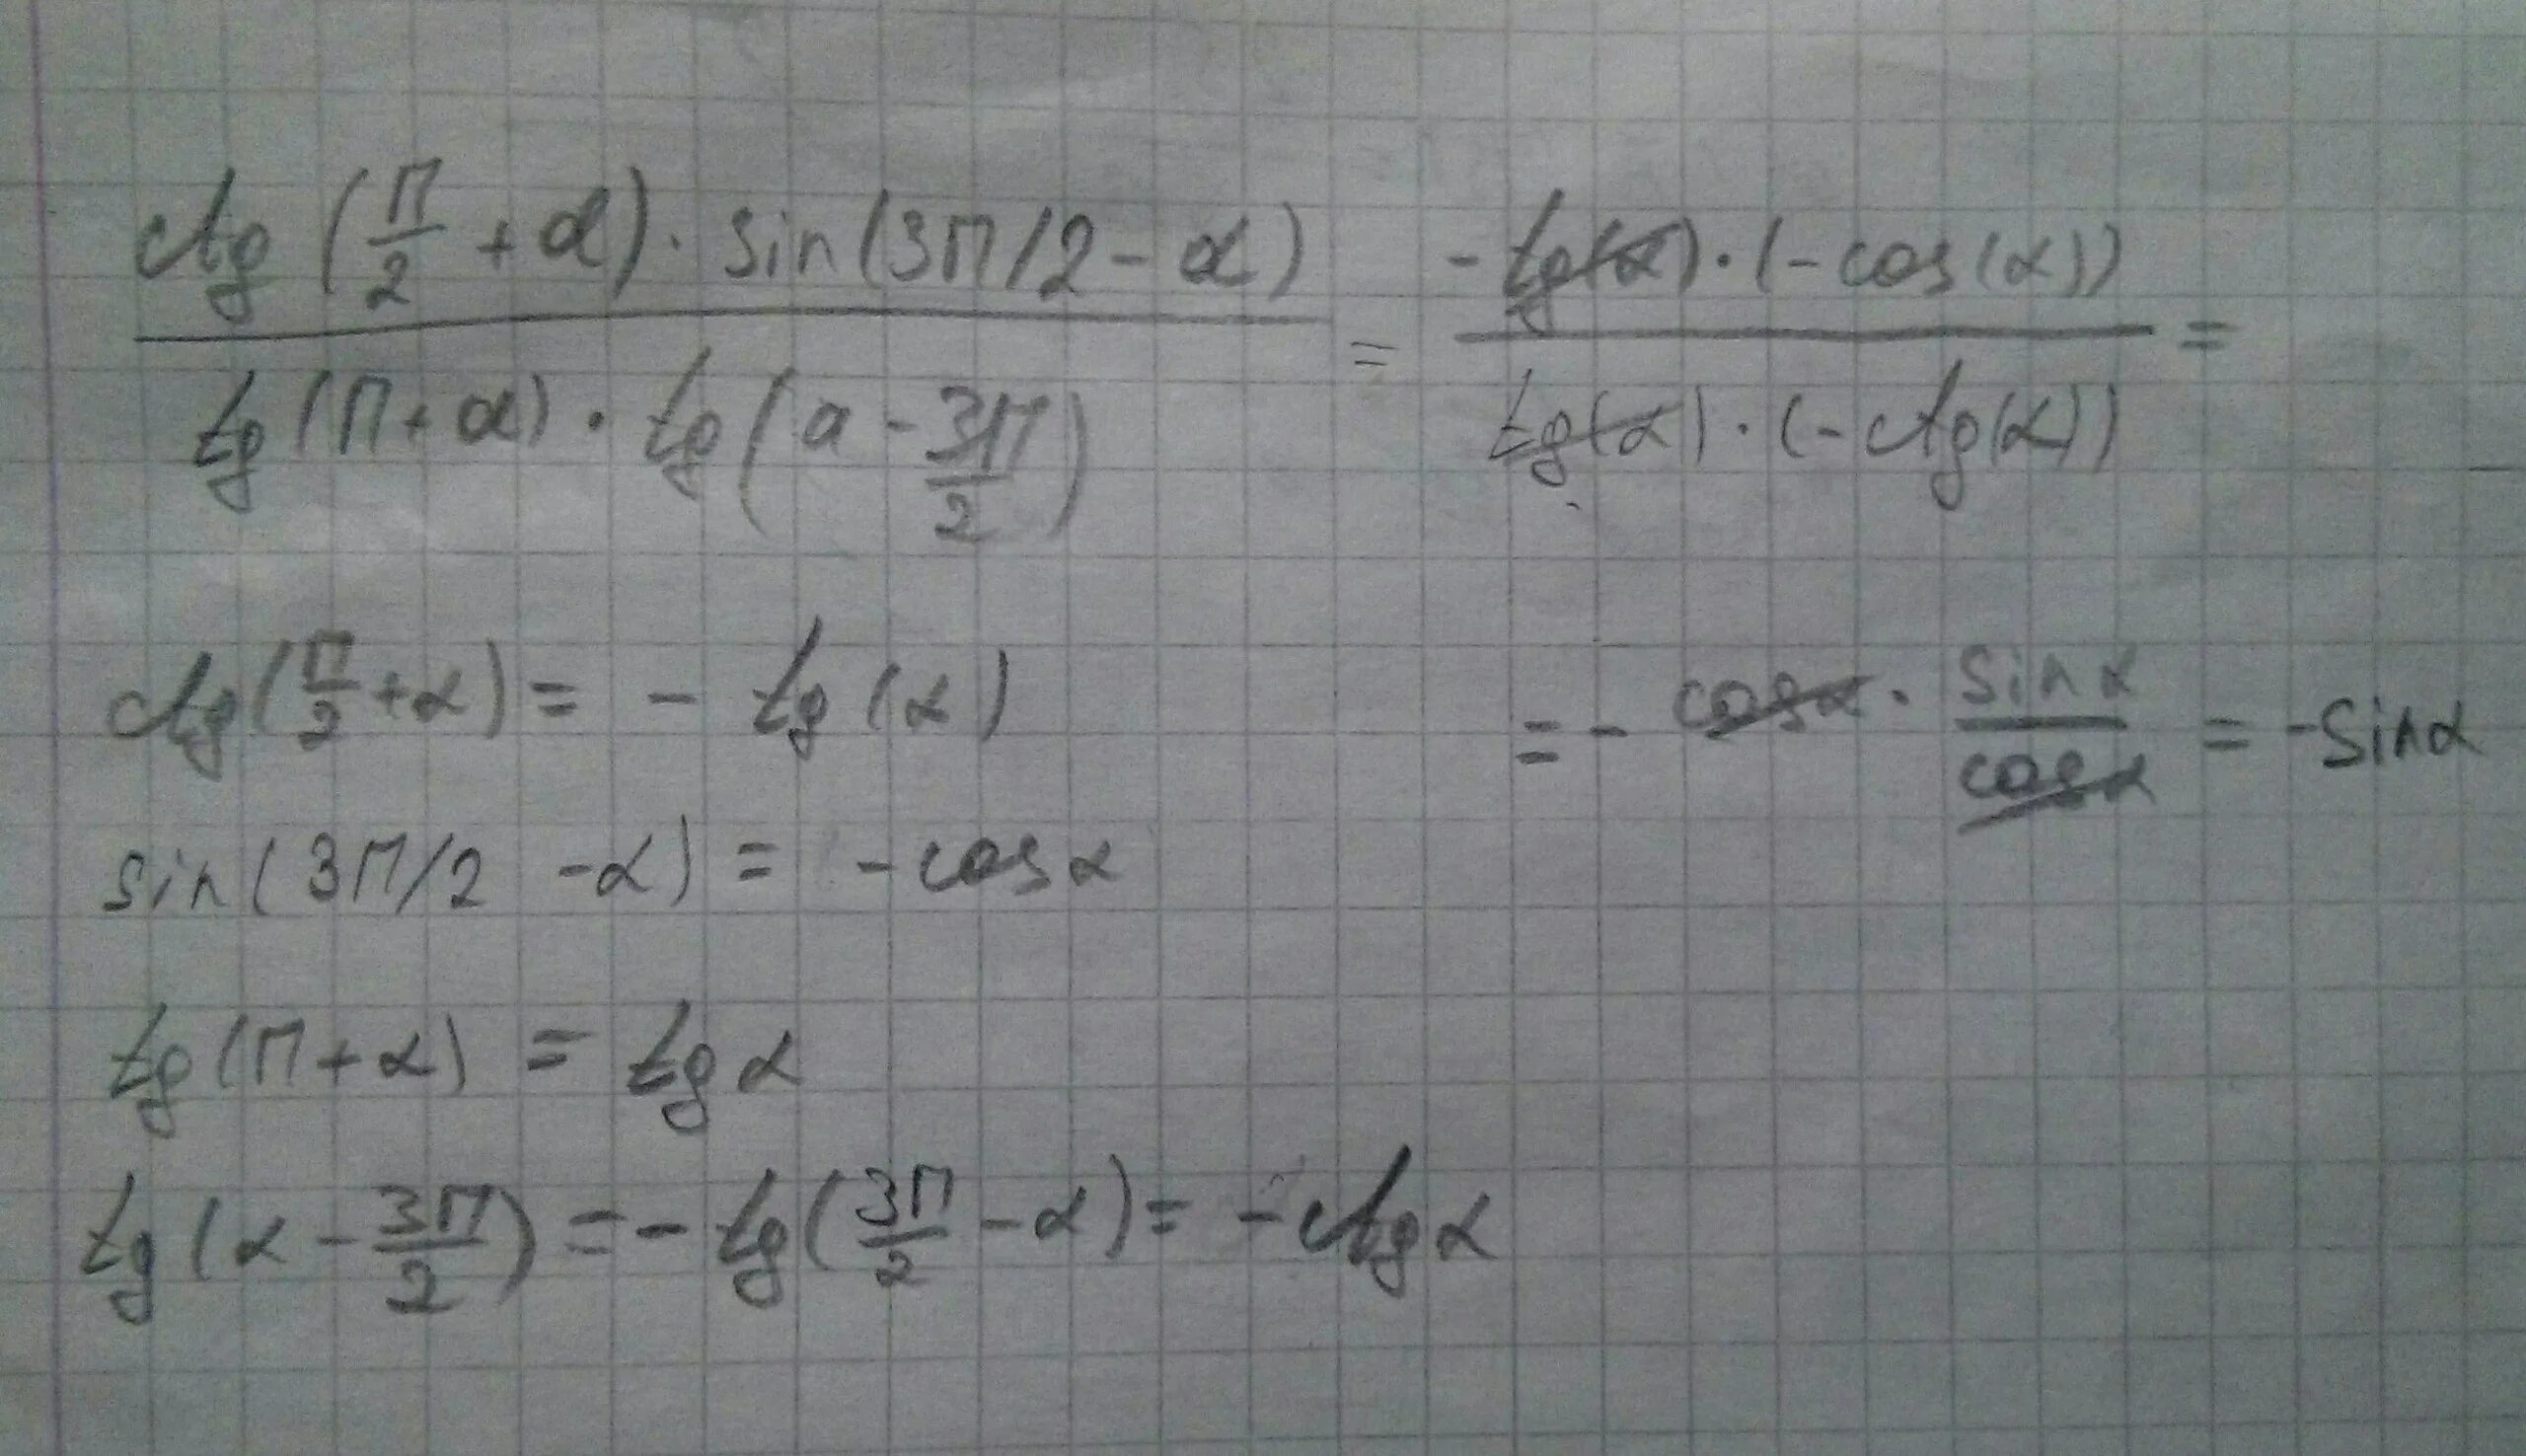 ctg (π/2 + α) · sin(3π/2 - α) / tg (π + α) · tg (a - 3π/2) = -tg(α) · (-cos(α)) / tg(α) · (-ctg(α)) =
ctg(π/2 + α) = - tg (α)
= - cosα · sinα / cosα = -sinα
sin(3π/2 - α) = -cosα
tg (π + α) = tg α
tg (α - 3π/2) = - tg (3π/2 - α) = - ctg α